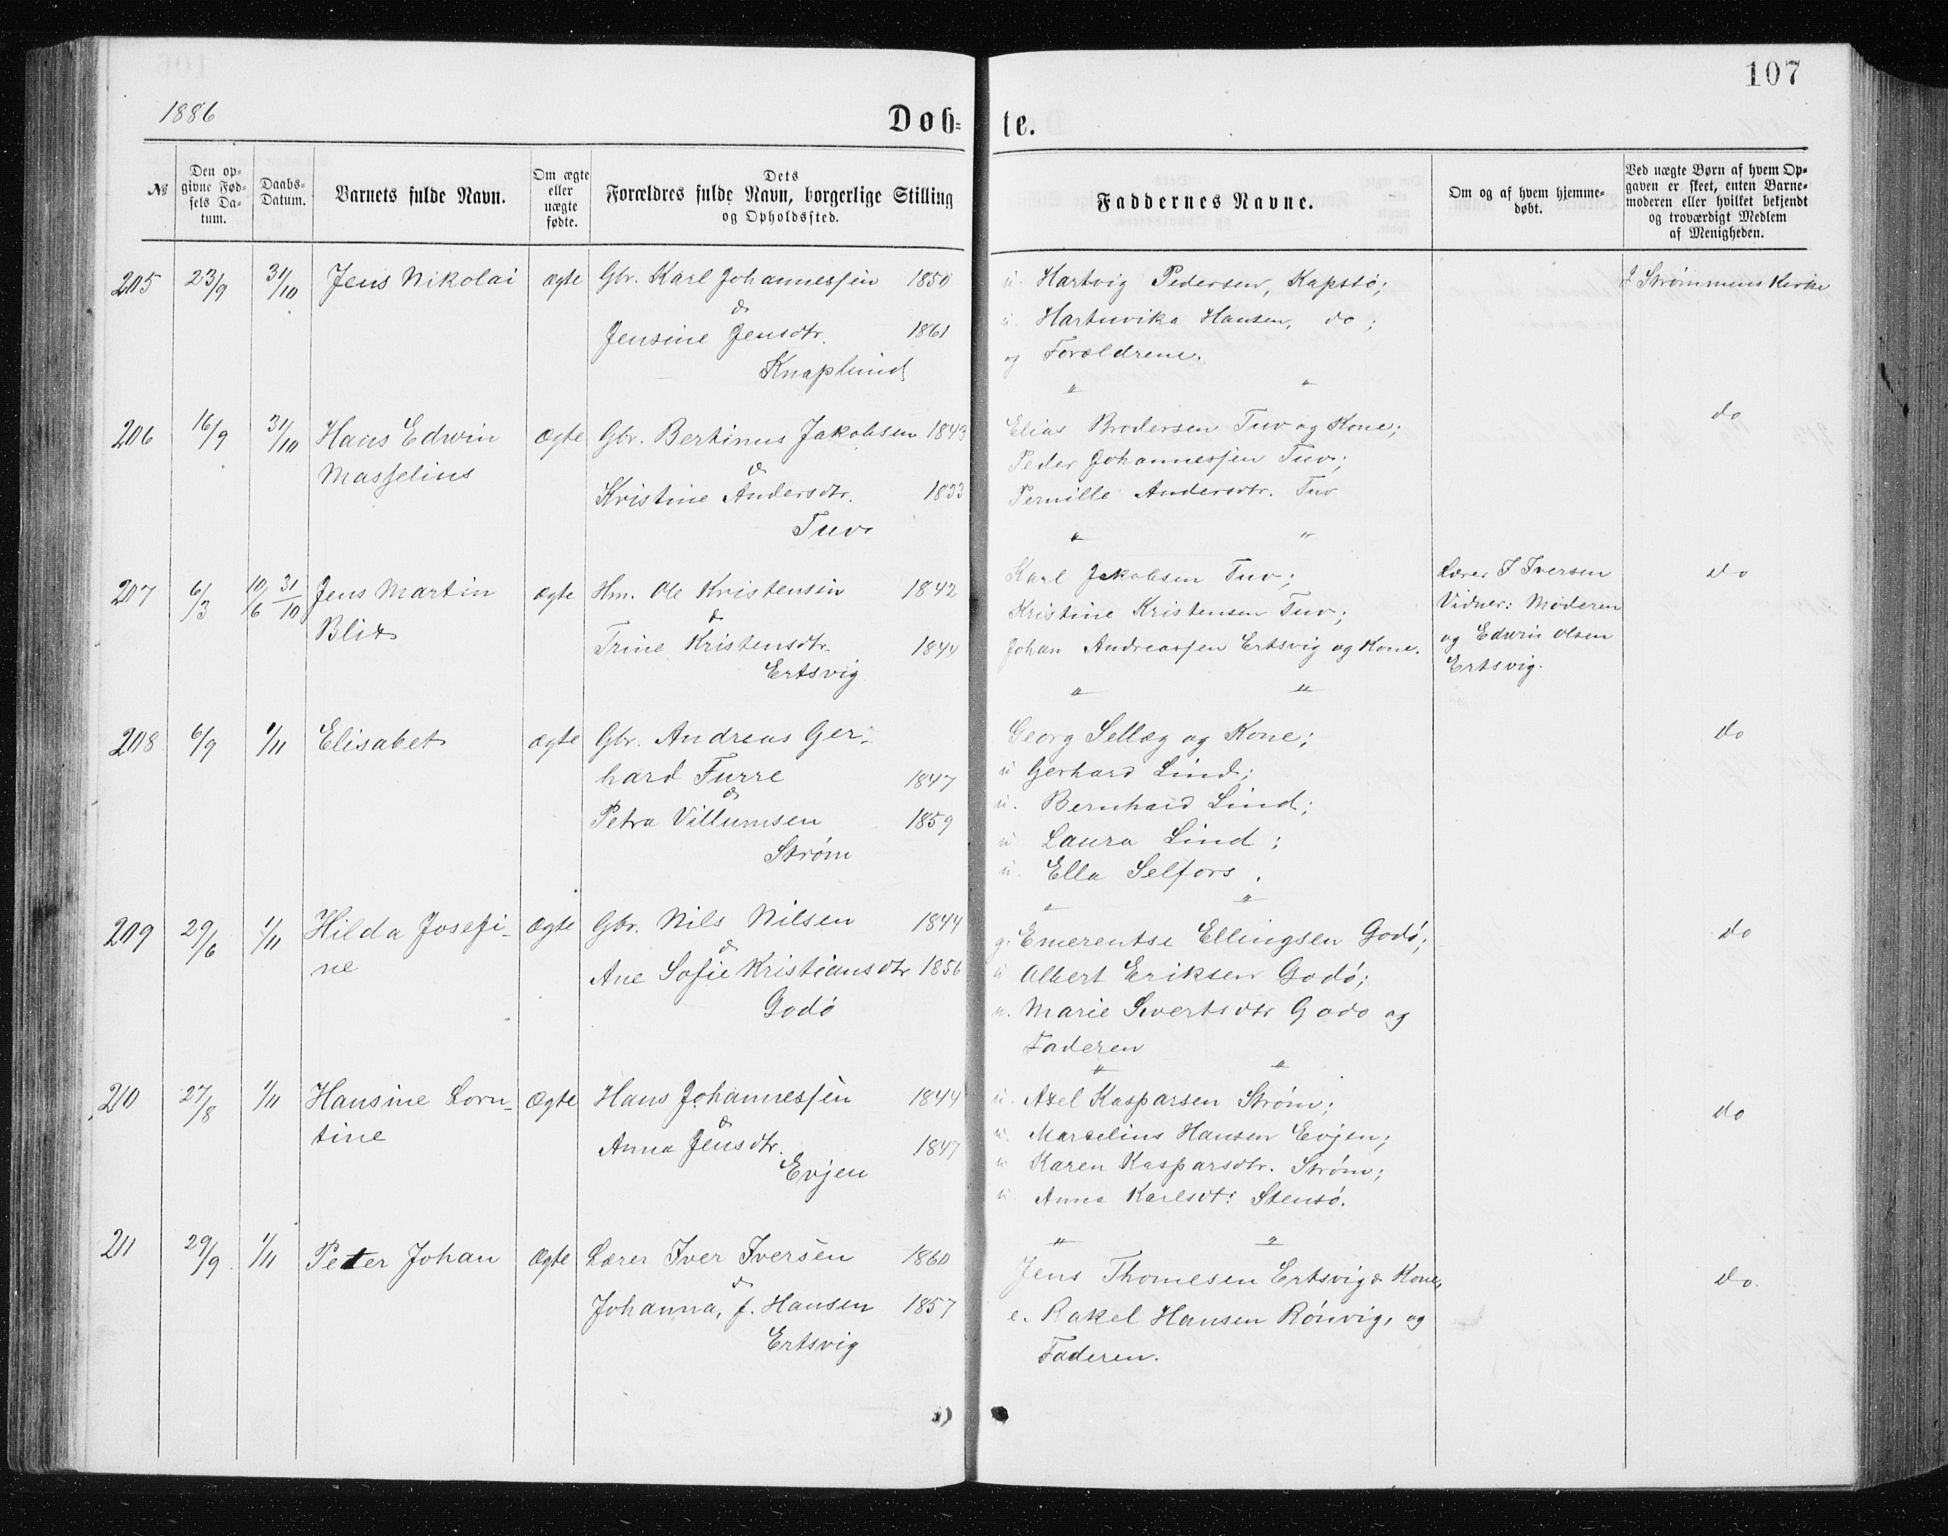 107
1886
Døb-
te.
№
Den opgivne Fødsels Datum.
Daabs-Datum.
Barnets fulde Navn.
Om ægte eller uægte fødte.
Dets Forældres fulde Navn, borgerlige Stilling og Opholdsfted.
Faddernes Navne.
Om og af hvem hjemmedøbt.
Ved uægte Børn af hvem Opgaven er skeet, enten Barnemoderen eller hvilket bekjendt og troværdigt Medlem af Menigheden.
205 23/9 31/10 Jens Nikolai ægte Gbr. Karl Johannessen 1850
&
Jensine Jensdtr. 1861
Knaplund
u. Hartvig Pedersen, Kapstø;
u. Hartuvika Hansen, do;
og Forældrene.
" "
I Strømmens Kirke
206 16/9 31/10 Hans Edwin ægte Gbr. Bertinus Jakobsen 1843
Masselius
&
Kristine Andersdtr. 1833
Tuv
Elias Brodersen Tuv og Kone;
Peder Johannessen Tuv;
Pernille Andersdtr. Tuv
" "
do
207 6/3 10/6 31/10 Jens Martin ægte Hm. Ole Kristensen 1842
Blix
&
Trine Kristensdtr. 1844
Ertsvig
Karl Jakobsen Tuv;
Kristine Kristensen Tuv;
Johan Andreassen Ertsvig og Kone.
" "
Lærer I Iversen
Vidner: Moderen
og Edwin Olsen
Ertsvig.
do
208 6/9 1/11 Elisabet ægte Gbr. Andreas Ger-
hard Furre 1847
&
Petra Villumsen 1859
Strøm
Georg Sellæg og Kone;
u Gerhard Lind;
u. Bernhard Lind;
u Laura Lind;
u. Ella Selfors.
" "
do
209 29/6 1/11 Hilda Josefi- Ægte Gbr. Nils Nilsen 1844
ne
&
Ane Sofie Kristiansdtr 1856
Godø
g. Emerentse Ellingsen Godø;
u Albert Eriksen Godø;
u. Marie Sivertsdtr Godø og
Faderen
" "
do
210 27/8 1/11 Hansine Lorn- Ægte Hans Johannessen 1844
tine
&
Anna Jensdtr. 1847
Evjen
u. Axel Kasparsen Strøm;
u. Marselius Hansen Evjen;
u Karen Kasparsdtr. Strøm;
u. Anna Karlsdtr Stensø.
" "
do
211 29/9 1/11 Peter Johan Ægte Lærer Iver Iversen 1860
&
Johanna, f. Hansen 1857
Ertsvig
Jens Thomesen Ertsvig & Kone,
e. Rakel Hansen Rønvig, og
Faderen.
do.